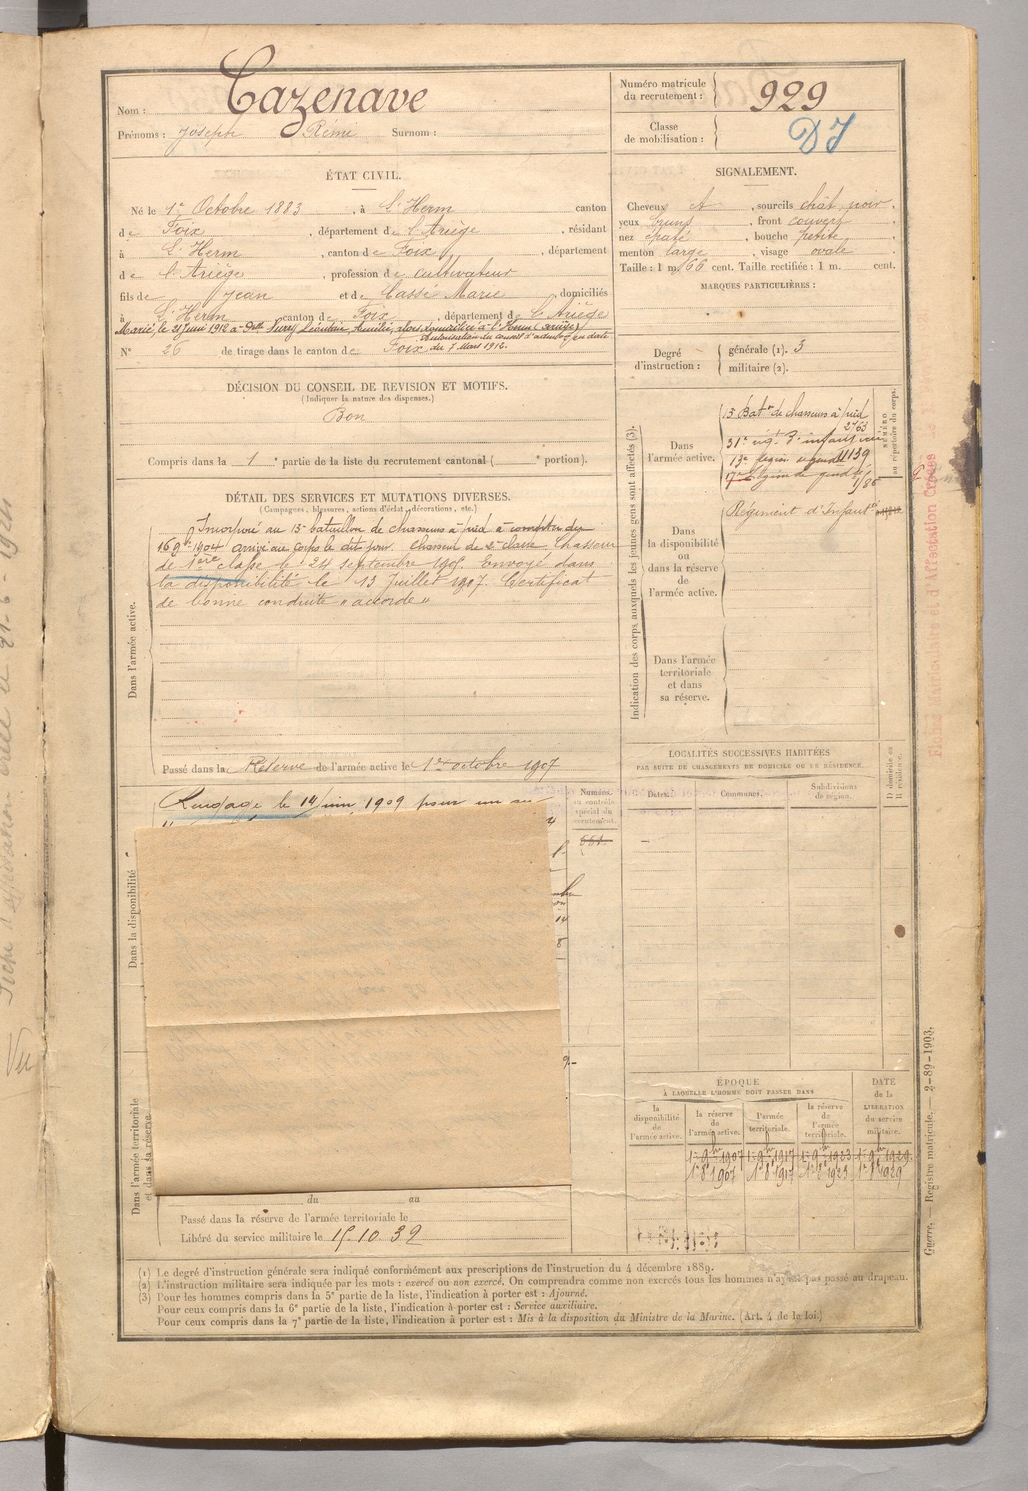 Nom : Cazenave
Prénoms : Joseph Rémi Surnom :
Numéro matricule du recrutement : 929
Classe de mobilisation : DI
ÉTAT CIVIL.
Né le 1er Octobre 1883, à L'Herm canton
de Foix, département de l'Ariège, résidant
à L'Herm, canton de Foix, département
de l'Ariège, profession de cultivateur
fils de Jean et de Cassé Marie, domiciliés
à L'Herm canton de Foix, département de l'Ariège
Marié, le 21 Juin 1912 à Dlle
Autorisation du Conseil d'admon en date
du 7 Mars 1912.
N° 26 de tirage dans le canton de Foix
SIGNALEMENT.
Cheveux ct, sourcils chât noir,
yeux bruns, front couvert,
nez épaté, bouche petite,
menton large, visage ovale
Taille : 1 m. 66 cent. Taille rectifiée : 1 m. cent.
MARQUES PARTICULIÈRES :
Degré d'instruction : générale (1). 3
militaire (2).
DÉCISION DU CONSEIL DE REVISION ET MOTIFS.
(Indiquer la nature des dispenses.)
Bon
Compris dans la 1e partie de la liste du recrutement cantonal ( e portion).
Indication des corps auxquels les jeunes gens sont affectés (3).
Dans l'armée active.
15 Baton de chasseurs à pied
2763
31e rég. d'infanterie
13e légion
1139
légion de gend
NUMÉRO au répertoire du corps.
Dans la disponibilité ou dans la réserve de l'armée active.
Régiment d'Infantie
Dans l'armée territoriale et dans sa réserve.
DÉTAIL DES SERVICES ET MUTATIONS DIVERSES.
(Campagnes, blessures, actions d'éclat, décorations, etc.)
Dans l'armée active.
Incorporé au 15e bataillon de chasseurs à pied à compter du
16 9bre 1904 arrivé au corps le dit jour. Chasseur de 2e classe. Chasseur
de 1ère classe le 24 septembre 1905. Envoyé dans
la disponibilité le 13 Juillet 1907. Certificat
de bonne conduite « accordé »
Passé dans la Réserve de l'armée active le 1er octobre 1907
LOCALITÉS SUCCESSIVES HABITÉES
PAR SUITE DE CHANGEMENTS DE DOMICILE OU DE RÉSIDENCE.
Dates. Communes. Subdivisions de région. D domicile ou R résidence.
Numéros au contrôle spécial du recrutement.
Dans la disponibilité
Rengagé le 14 juin 1909 pour un an
Dans l'armée territoriale et dans sa réserve.
du au
Passé dans la réserve de l'armée territoriale le
Libéré du service militaire le 15.10.32
ÉPOQUE
À LAQUELLE L'HOMME DOIT PASSER DANS
la disponibilité de l'armée active.
la réserve de l'armée active.
l'armée territoriale.
la réserve de l'armée territoriale.
DATE de la LIBÉRATION du service militaire.
1er 9bre 1907 1er 9bre 1917 1er 9bre 1923 1er 9bre 1929
1er 8bre 1907 1er 8bre 1917 1er 8bre 1923 1er 8bre 1929
(1) Le degré d'instruction générale sera indiqué conformément aux prescriptions de l'instruction du 4 décembre 1889.
(2) L'instruction militaire sera indiquée par les mots : exercé ou non exercé. On comprendra comme non exercés tous les hommes n'ayant pas passé au drapeau.
(3) Pour les hommes compris dans la 5e partie de la liste, l'indication à porter est : Ajourné.
Pour ceux compris dans la 6e partie de la liste, l'indication à porter est : Service auxiliaire.
Pour ceux compris dans la 7e partie de la liste, l'indication à porter est : Mis à la disposition du Ministre de la Marine. (Art. 4 de la loi.)
Guerre. — Registre matricule. — 2-89-1903.
Matriculaire et d'Affectation Créées le
Vu